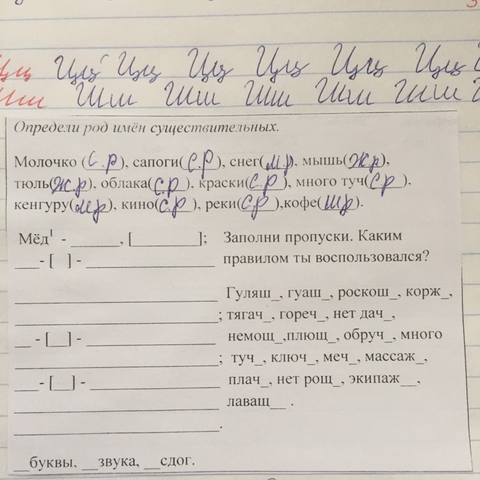 Цц Цц Цц Цц Цц Цц Цц
Шш Шш Шш Шш Шш Шш
Определи род имён существительных.
Молочко (с.р), сапоги(с.р), снег(м.р), мышь(ж.р),
тюль(ж.р), облака(с.р), краски(с.р), много туч(с.р),
кенгуру(м.р), кино(с.р), реки(с.р),кофе(м.р).
Мёд¹ - ______, [________];
__- [ ] - ____________
____________________
____________________;
__ - [__] - ____________
____________________;
__- [__] - ____________
____________________
____________________.
__буквы, __звука, __сдог.
Заполни пропуски. Каким
правилом ты воспользовался?
Гуляш_, гуаш_, роскош_, корж_,
тягач_, гореч_, нет дач_,
немощ_,плющ_, обруч_, много
туч_, ключ_, меч_, массаж_,
плач_, нет рощ_, экипаж__,
лаващ__ .